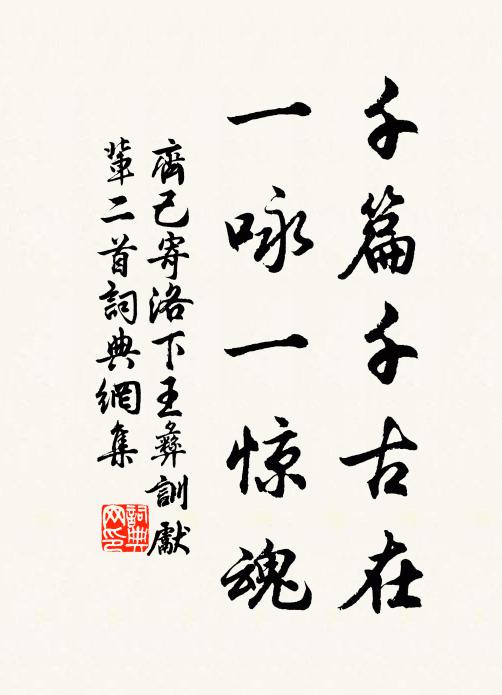 千篇千古在
一咏一惊魂
齊己寄洛下王彝訓獻
輩二首詞典網集
詞典网印